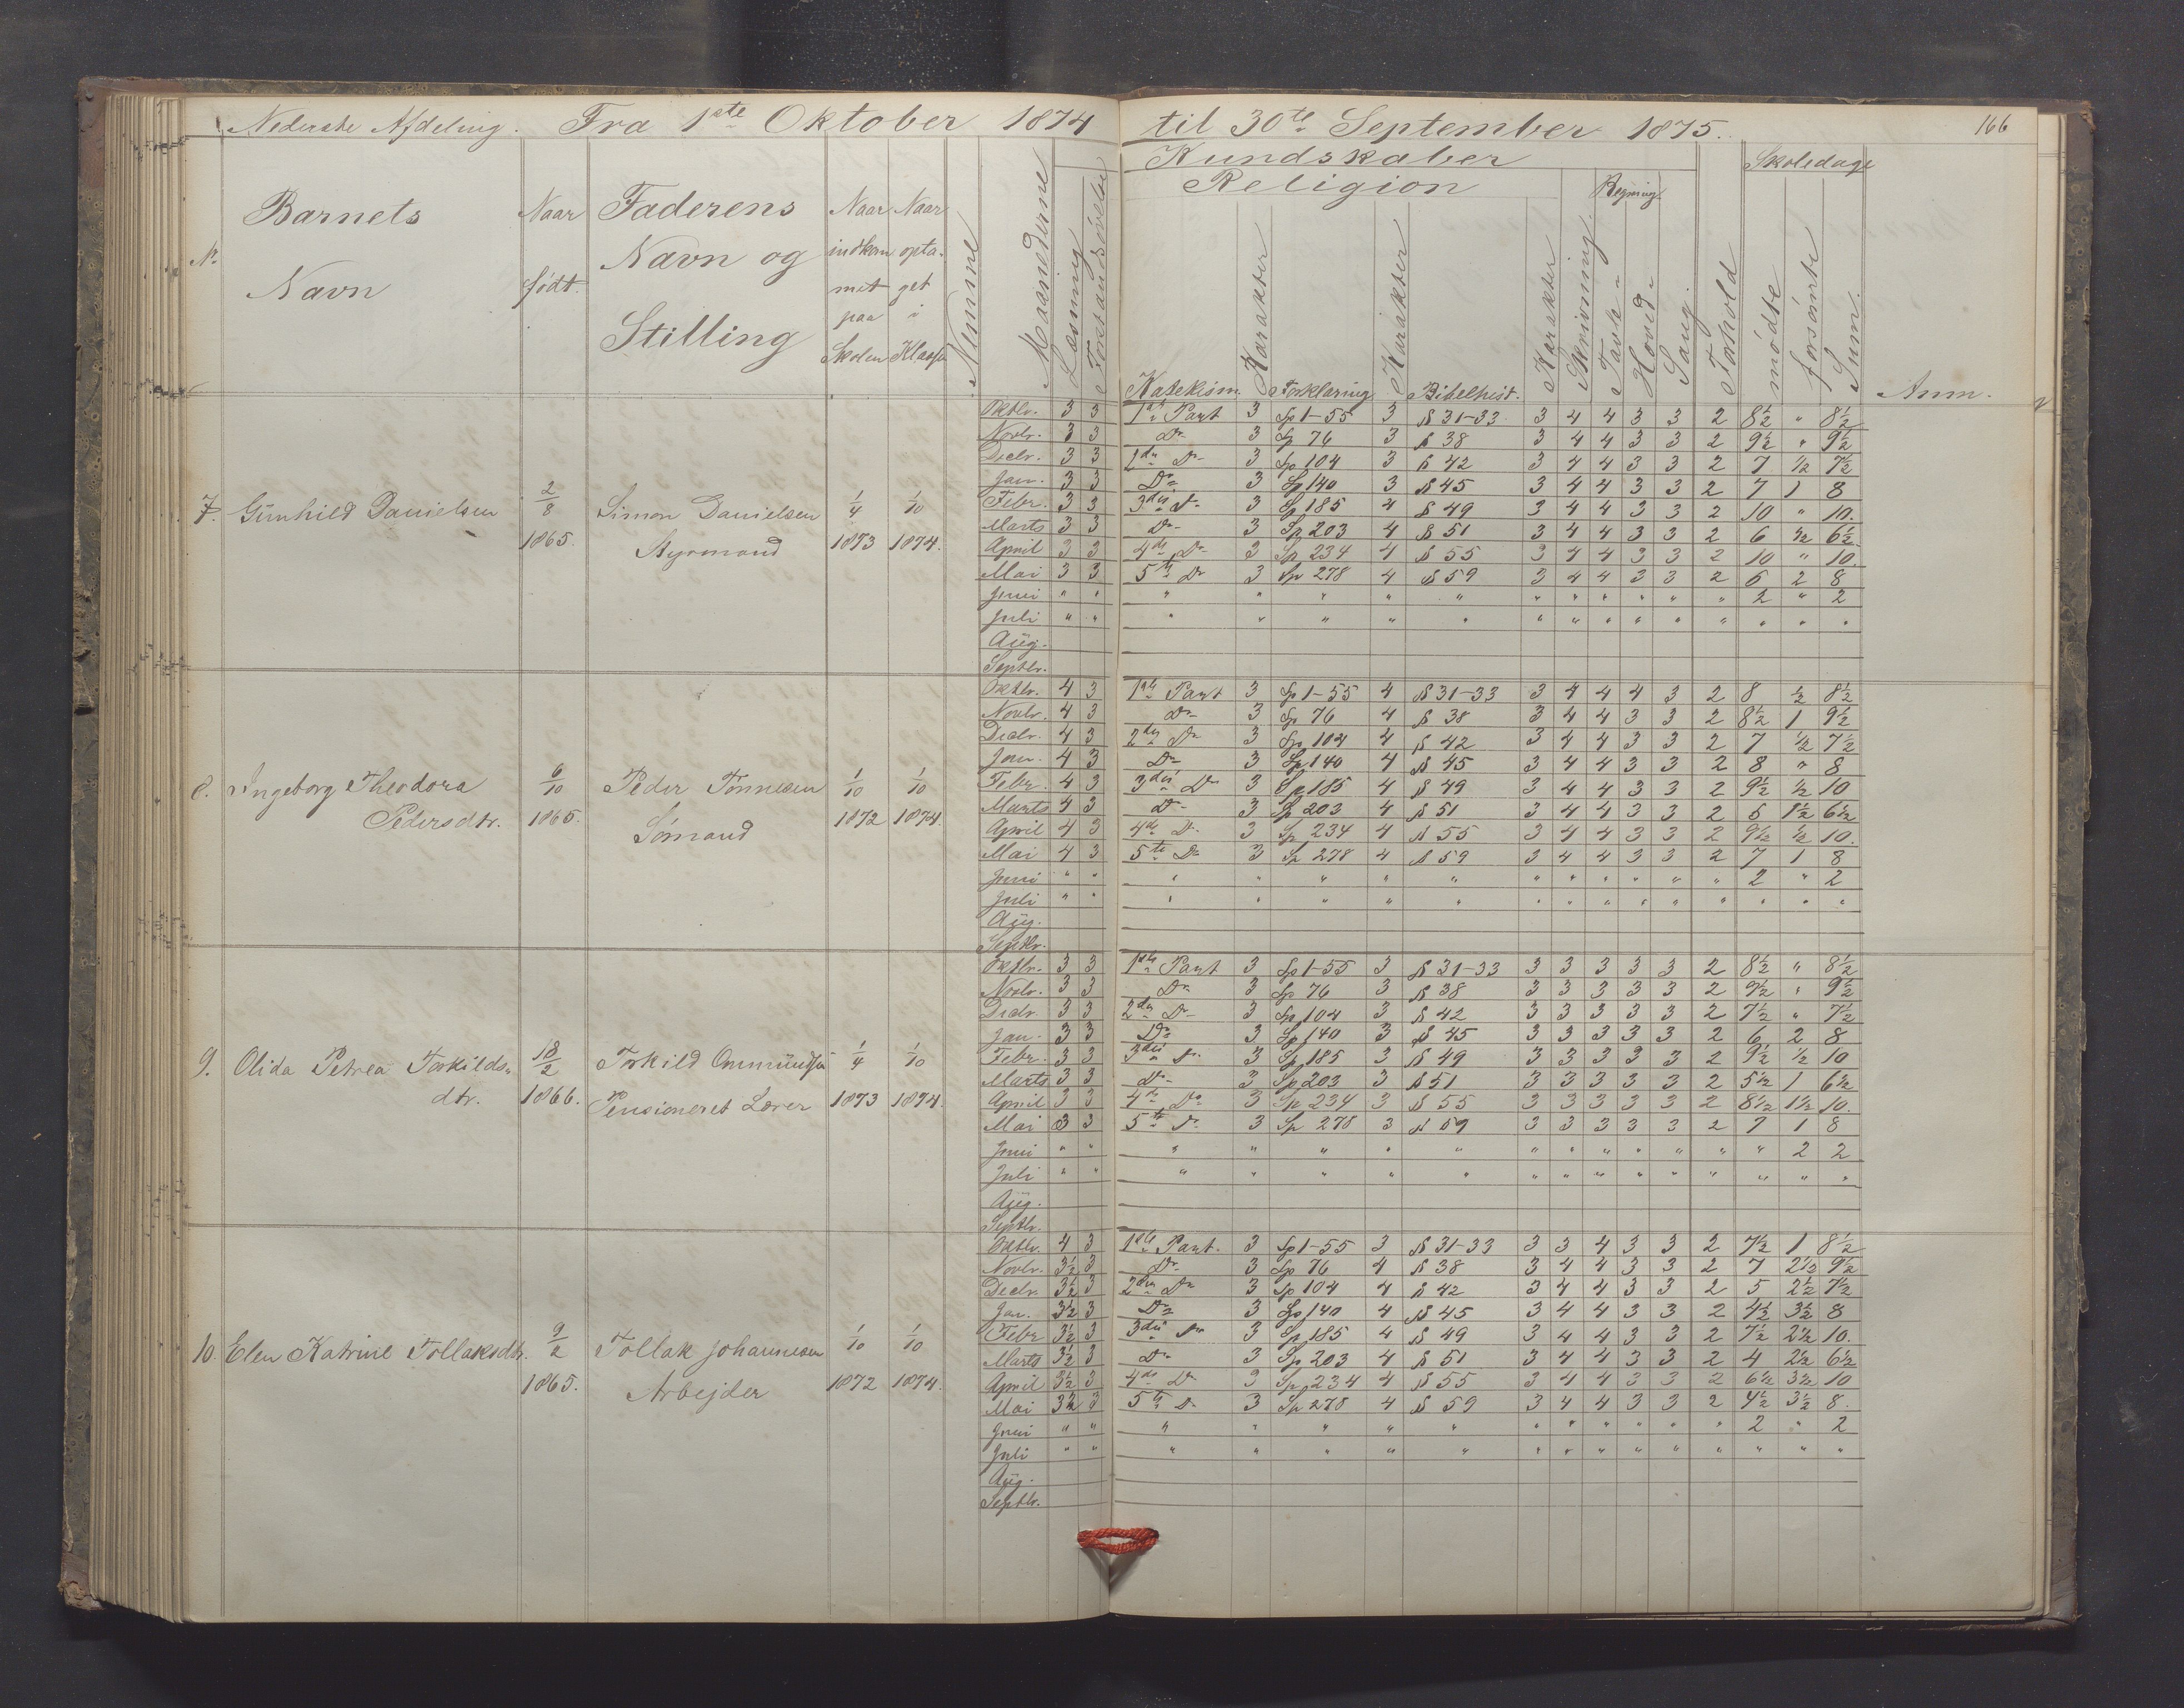 Nederste Afdeling. Fra 1ste Oktober 1874 til 30te September 1875. 166
Kundskaber Skoledage
Religion Regning
No Barnets Navn Naar født. Faderens Navn og Stilling Naar indkommet paa Skolen Naar optaget i Klassen Numne Maanederne Læsning Forstandsøvelse Katekism. Karakter Forklaring Karakter Bibelhist. Karakter Skrivning Tavle- Hoved- Sang. Forhold mødte forsømte Sum. Anm.
7. Gunhild Danielsen 2/8 1865. Simon Danielsen Styrmand 1/4 1873 1/10 1874.
Oktbr. 3 3 1ste Part 3 Sp 1-55 3 § 31-33 3 4 4 3 3 2 8½ " 8½
Novbr. 3 3 Do 3 Sp 76 3 § 38 3 4 4 3 3 2 9½ " 9½
Decbr. 3 3 2den Do 3 Sp 104 3 § 42 3 4 4 3 3 2 7 ½ 7½
Jan. 3 3 Do 3 Sp 140 3 § 45 3 4 4 3 3 2 7 1 8
Febr. 3 3 3die Do 3 Sp 185 4 § 49 3 4 4 3 3 2 10 " 10.
Marts 3 3 Do 3 Sp 203 4 § 51 3 4 4 3 3 2 6 ½ 6½
April 3 3 4de Do 3 Sp 234 4 § 55 3 4 4 3 3 2 10 " 10.
Mai 3 3 5te Do 3 Sp 278 4 § 59 3 4 4 3 3 2 6 2 8
Juni " " " " " " " " " " " " " 2 " 2
Juli " " " " " " " " " " " " " " " "
Aug.
Septbr.
8. Ingeborg Theodora Pedersdtr. 6/10 1865. Peder Tønnesen Sømand 1/10 1872 1/10 1874.
Oktbr. 4 3 1ste Part 3 Sp 1-55 4 § 31-33 3 4 4 4 3 2 8 ½ 8½
Novbr. 4 3 Do 3 Sp 76 4 § 38 3 4 4 3 3 2 8½ 1 9½
Decbr. 4 3 2den Do 3 Sp 104 4 § 42 3 4 4 3 3 2 7 ½ 7½
Jan. 4 3 Do 3 Sp 140 4 § 45 3 4 4 3 3 2 8 " 8
Febr. 4 3 3die Do 3 Sp 185 4 § 49 3 4 4 3 3 2 9½ ½ 10
Marts 4 3 Do 3 Sp 203 4 § 51 3 4 4 3 3 2 5 1½ 6½
April 4 3 4de Do 3 Sp 234 4 § 55 3 4 4 3 3 2 9½ ½ 10.
Mai 4 3 5te Do 3 Sp 278 4 § 59 3 4 4 3 3 2 7 1 8
Juni " " " " " " " " " " " " " 2 " 2
Juli " " " " " " " " " " " " " " " "
Aug.
Septbr.
9. Olida Petrea Torkildsdtr. 18/2 1866. Torkild Ommundsen Pensioneret Lærer 1/4 1873 1/10 1874.
Oktbr. 3 3 1ste Part 3 Sp 1-55 3 § 31-33 3 3 3 3 3 2 8½ " 8½
Novbr. 3 3 Do 3 Sp 76 3 § 38 3 3 3 3 3 2 9½ " 9½
Decbr. 3 3 2den Do 3 Sp 104 3 § 42 3 3 3 3 3 2 7½ " 7½
Jan. 3 3 Do 3 Sp 140 3 § 45 3 3 3 3 3 2 6 2 8
Febr. 3 3 3die Do 3 Sp 185 3 § 49 3 3 3 3 3 2 9½ ½ 10
Marts 3 3 Do 3 Sp 203 3 § 51 3 3 3 3 3 2 5½ 1 6½
April 3 3 4de Do 3 Sp 234 3 § 55 3 3 3 3 3 2 8½ 1½ 10.
Mai 3 3 5te Do 3 Sp 278 3 § 59 3 3 3 3 3 2 7 1 8
Juni " " " " " " " " " " " " " " 2 2
Juli " " " " " " " " " " " " " " " "
Aug.
Septbr.
10. Elen Katrine Tollaksdtr. 9/2 1865. Tollak Johannesen Arbejder 1/10 1872 1/10 1874.
Oktbr. 4 3 1ste Part. 3 Sp 1-55 3 § 31-33 3 3 4 3 3 2 7½ 1 8½
Novbr. 3½ 3 Do 3 Sp 76 4 § 38 3 4 4 3 3 2 7 2½ 9½
Decbr. 3½ 3 2den Do 3 Sp 104 4 § 42 3 4 4 3 3 2 5 2½ 7½
Jan. 3½ 3 Do 3 Sp 140 4 § 45 3 4 4 3 3 2 4½ 3½ 8
Febr 3½ 3 3die Do 3 Sp 185 4 § 49 3 4 4 3 3 2 7½ 2½ 10.
Marts 3½ 3 Do 3 Sp 203 4 § 51 3 4 4 3 3 2 4 2½ 6½
April 3½ 3 4de Do 3 Sp 234 4 § 55 3 4 4 3 3 2 6½ 3½ 10
Mai 3½ 3 5te Do 3 Sp 278 4 § 59 3 4 4 3 3 2 4½ 3½ 8.
Juni " " " " " " " " " " " " " 2 " 2
Juli " " " " " " " " " " " " " " " "
Aug.
Septbr.